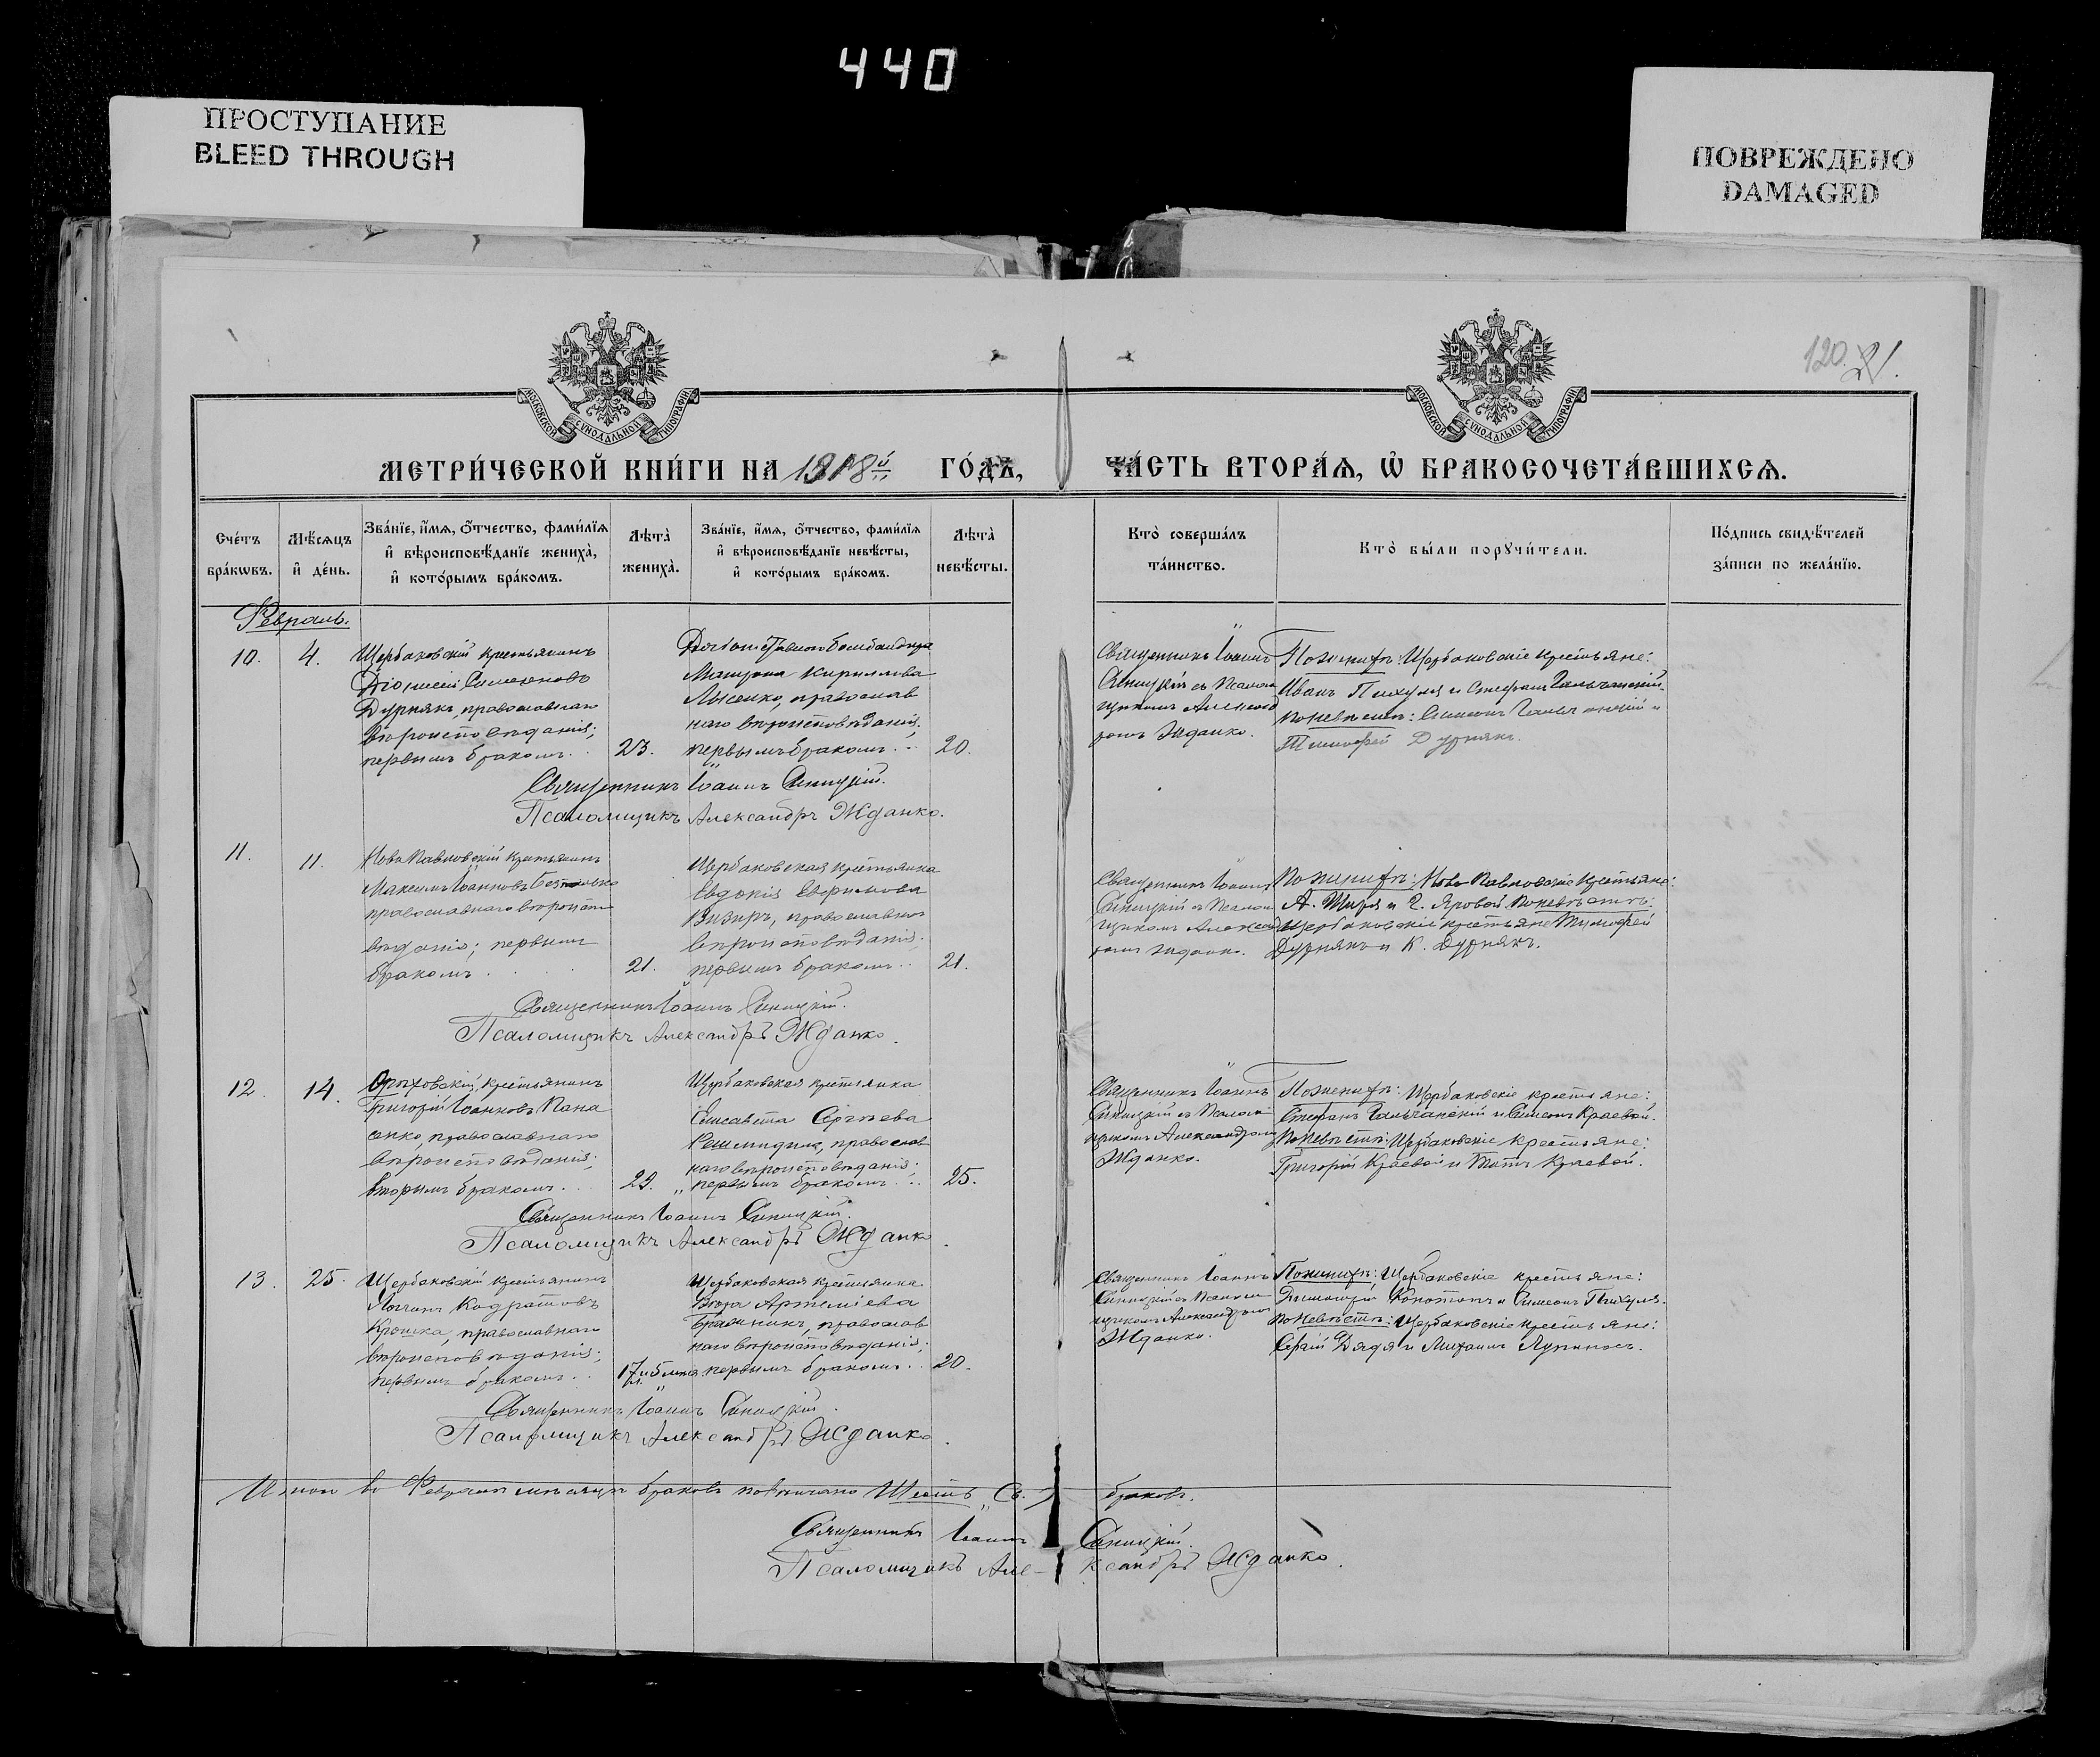 440
ПРОСТУПАНИЕ
BLEED THROUGH
ПОВРЕЖДЕНО
DAMAGED
120. 21.
МОСКОВСКОЙ СУНОДАЛЬНОЙ ТИПОГРАФІИ
МОСКОВСКОЙ СУНОДАЛЬНОЙ ТИПОГРАФІИ
МЕТРИ́ЧЕСКОЙ КНИ́ГИ НА 1918й ГО́ДЪ,
ЧА́СТЬ ВТОРА́Я, Ѽ БРАКОСОЧЕТА́ВШИХСЯ.
Сче́тъ бра́кѡвъ.
Мѣ́сяцъ и҆ де́нь.
Зва́нїе, и҆́мя, ѻ҆́тчество, фами́лїя
и҆ вѣроисповѣ́данїе жениха̀,
и҆ кото́рымъ бра́комъ.
Лѣта̀ жениха̀.
Зва́нїе, и҆́мя, ѻ҆́тчество, фами́лїя
и҆ вѣроисповѣ́данїе невѣ́сты,
и҆ кото́рымъ бра́комъ.
Лѣта̀ невѣ́сты.
Кто̀ соверша́лъ
та́инство.
Кто̀ бы́ли порꙋчи́тели.
По́дпись свидѣ́телей
за́писи по жела́нїю.
Февраль.
10. 4.
Щербаковскій крестьянинъ
Діонисій Симеоновъ
Дурнякъ, православнаго
вѣроисповѣданія;
первымъ бракомъ. 23.
Матрона Кириллова
Лысенко, православ
наго вѣроисповѣданія;
первымъ бракомъ. 20.
Священникъ Іоаннъ
Синицкій съ Псалом
щикомъ Александ
ромъ Жданко.
По женихѣ: Щербаковскіе крестьяне:
Иванъ Пихуля и Стефанъ Гальчанскій.
по невѣстѣ: Симеонъ Гальчанскій и
Тимофей Дурнякъ.
Священникъ Іоаннъ Синицкій.
Псаломщикъ Александръ Жданко.
11. 11.
Ново Павловскій крестьянинъ
Максимъ Іоанновъ
православнаго вѣроиспо
вѣданія; первымъ
бракомъ. 21.
Щербаковская крестьянка
Евдокія Ефимова
Визиръ, православнаго
вѣроисповѣданія.
первымъ бракомъ. 21.
Священникъ Іоаннъ
Синицкій съ Псалом
щикомъ Александ
ромъ Жданко.
По женихѣ: Ново Павловскіе крестьяне:
А. Шыря и Г. Яровой. По невѣстѣ:
Щербаковскіе крестьяне Тимофей
Дурнякъ и К. Дурнякъ.
Священникъ Іоаннъ Синицкій.
Псаломщикъ Александръ Жданко.
12. 14.
Орѣховскій крестьянинъ
Григорій Іоанновъ Пана
сенко, православнаго
вѣроисповѣданія;
вторымъ бракомъ. 22.
Щербаковская крестьянка
Елисавета Сергѣева
православ
наго вѣроисповѣданія;
первымъ бракомъ. 25.
Священникъ Іоаннъ
Синицкій съ Псалом
щикомъ Александромъ
Жданко.
По женихѣ: Щербаковскіе крестьяне:
Стефанъ Гальчанскій и Симеонъ Краевой.
По невѣстѣ: Щербаковскіе крестьяне:
Григорій Краевой и Краевой.
Священникъ Іоаннъ Синицкій.
Псаломщикъ Александръ Жданко
13. 25.
Щербаковскій крестьянинъ
Логгинъ Кодратовъ
Крошка, православнаго
вѣроисповѣданія;
первымъ бракомъ.
17 л. и 5 мѣся
Щербаковская крестьянка
Вѣра Артеміева
православ
наго вѣроисповѣданія;
первымъ бракомъ. 20.
Священникъ Іоаннъ
Синицкій съ Псалом
щикомъ Александромъ
Жданко.
По женихѣ: Щербаковскіе крестьяне:
Конотопъ и Симеонъ Пихуля.
По невѣстѣ: Щербаковскіе крестьяне:
Сергій Дядя и Михаилъ Лупиносъ.
Священникъ Іоаннъ Синицкій.
Псаломщикъ Александръ Жданко.
Итого во Февралѣ мѣсяцѣ браковъ повѣнчано Шесть „6“ браковъ.
Священникъ Іоаннъ Синицкій.
Псаломщикъ Александръ Жданко.